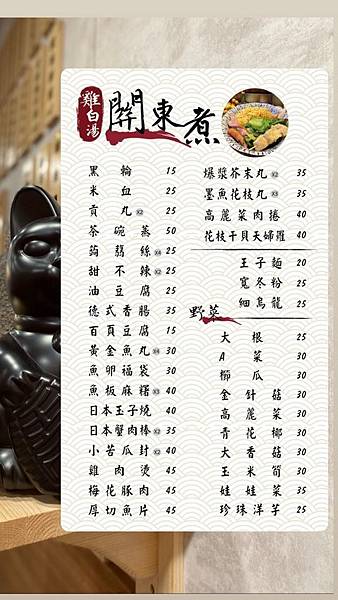 雞白湯
關東煮
黑輪 15
米血 25
貢丸x2 25
茶碗蒸 50
蒟蒻絲x4 25
甜不辣x2 25
油豆腐 25
德式香腸 35
百頁豆腐 15
黃金魚丸x4 30
魚卵福袋 30
魚板麻糬x3 40
日本玉子燒 40
日本蟹肉棒x2 35
小苦瓜封x2 40
雞肉燙 45
梅花豚肉 45
厚切魚片 45
爆漿芥末丸x2 35
墨魚花枝丸x3 35
高麗菜肉捲 40
花枝干貝天婦羅 40
王子麵 20
寬冬粉 25
細烏龍 25
野菜
大根 25
A菜 30
櫛瓜 30
金針菇 30
高麗菜 30
青花椰 30
大香菇 30
玉米筍 30
娃娃菜 35
珍珠洋芋 25